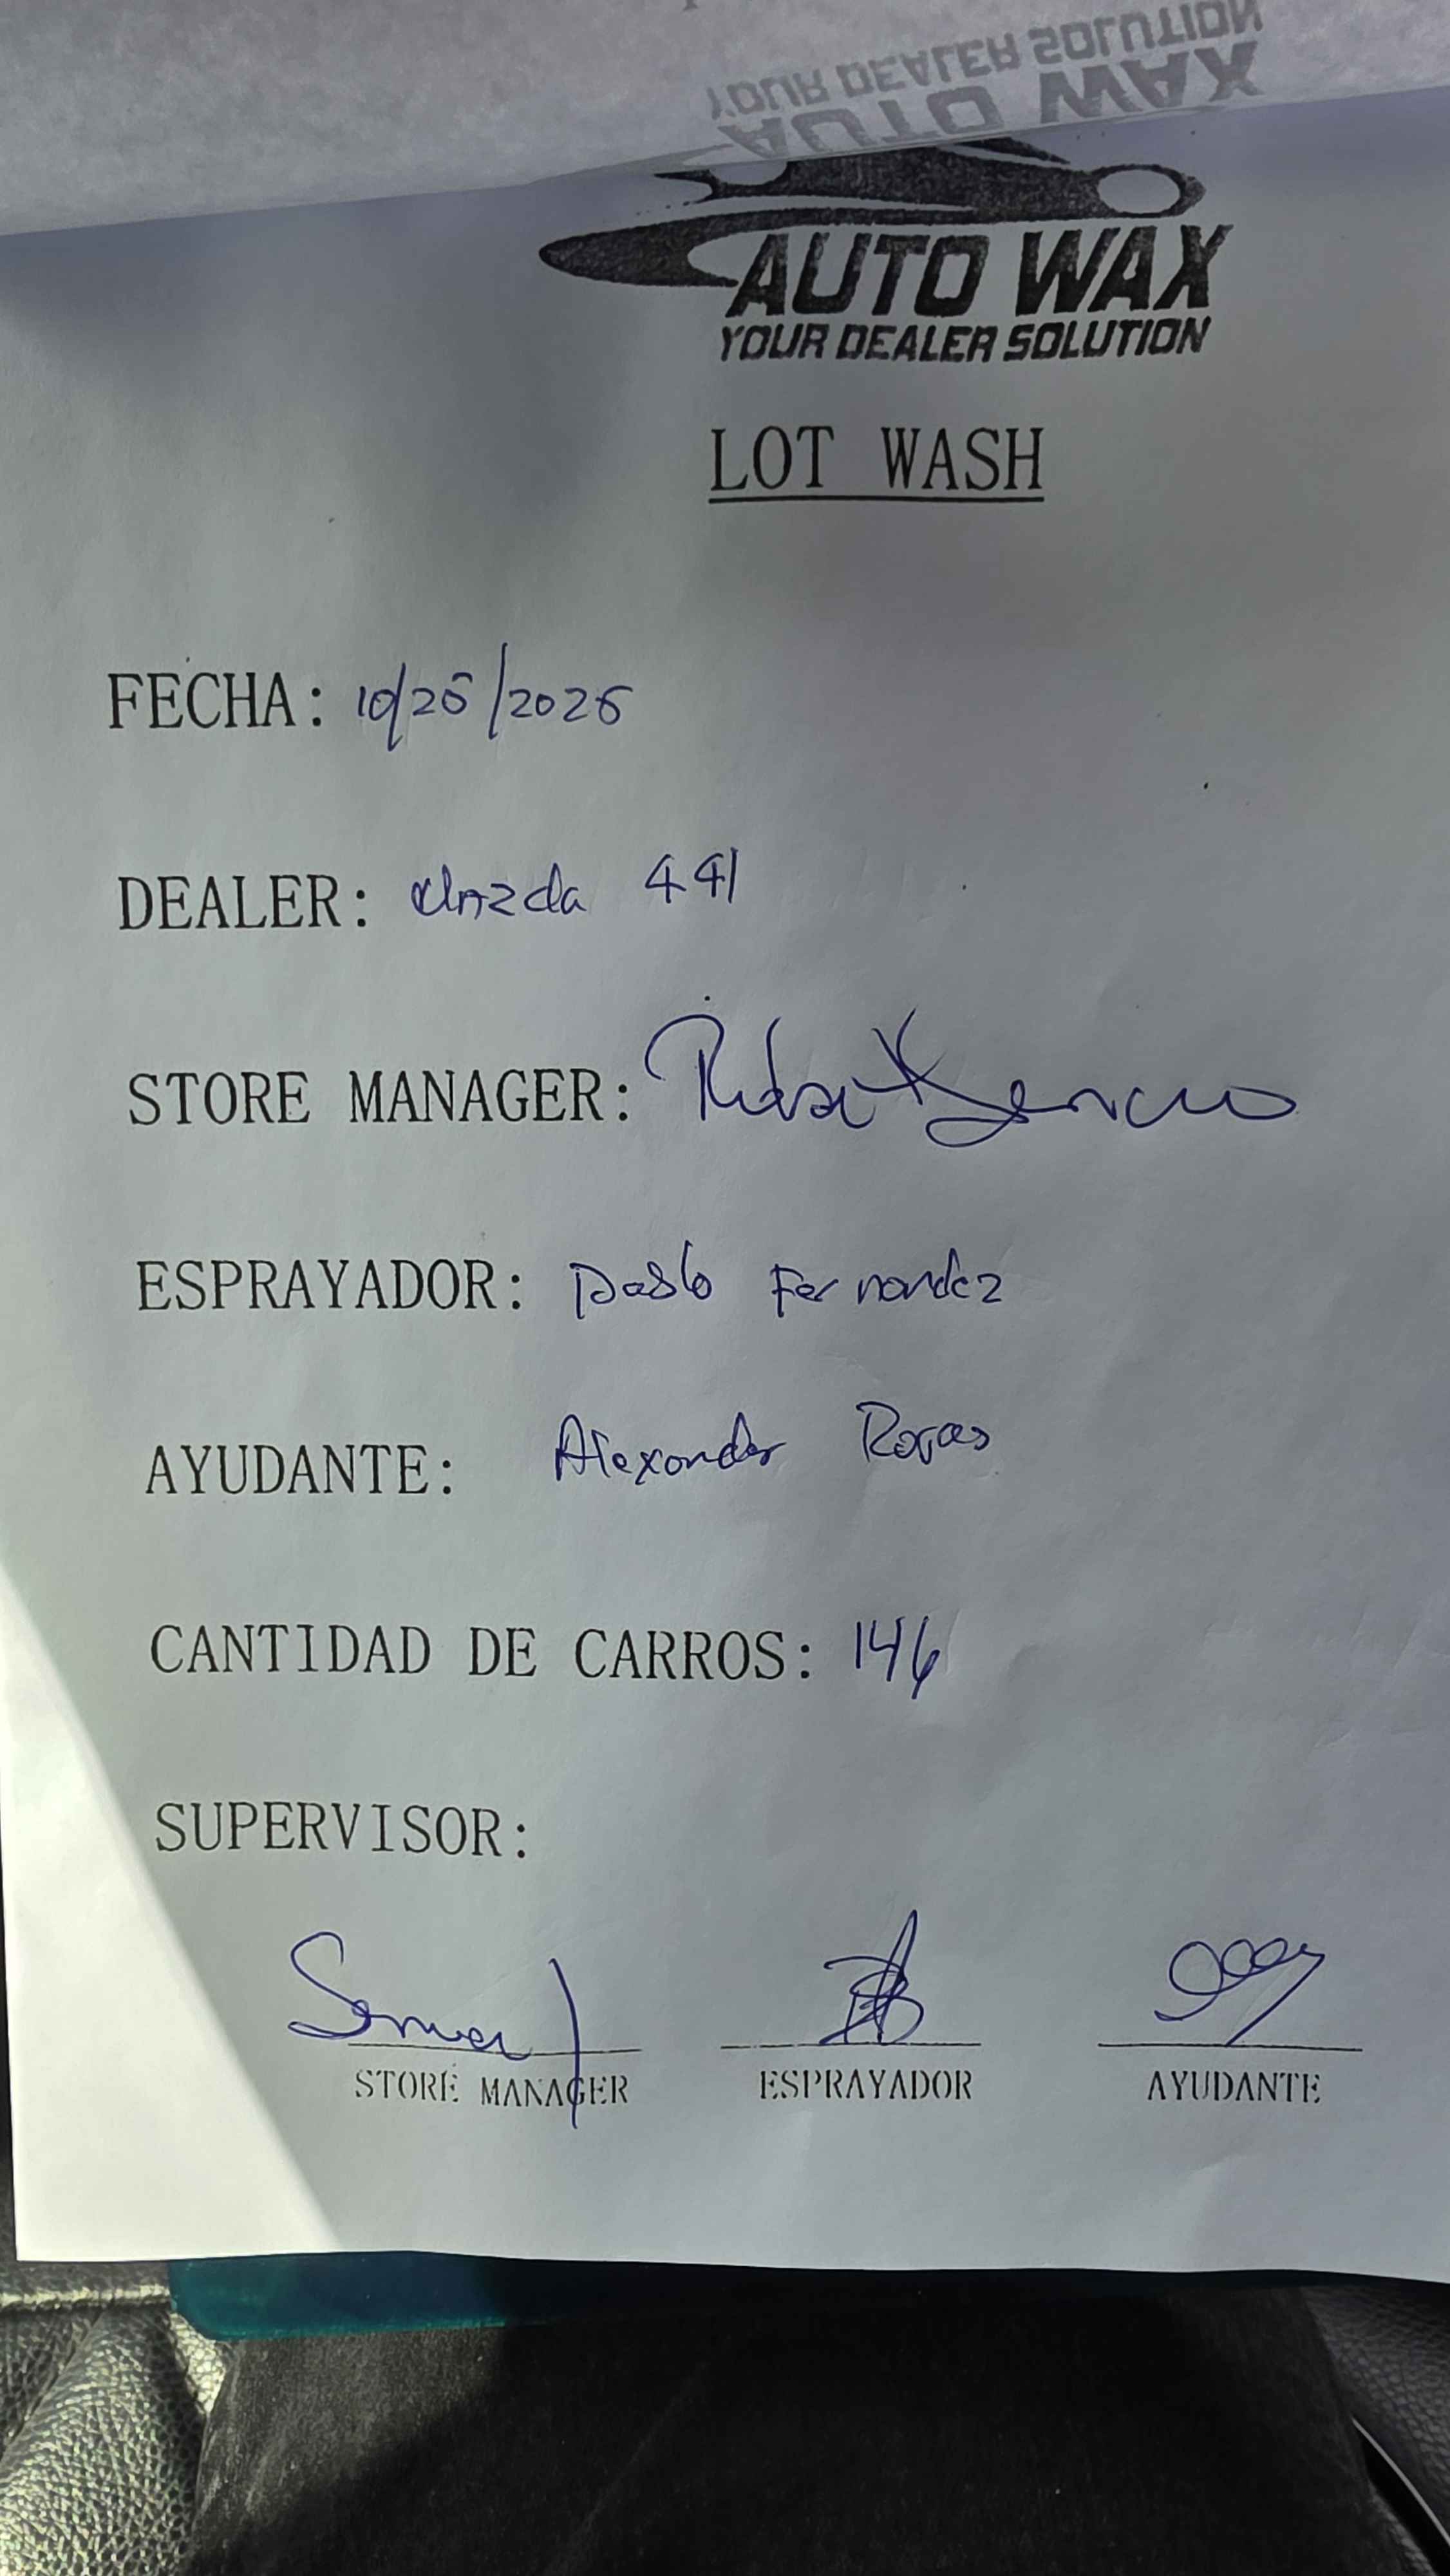 YOUR DEALER SOLUTION
AUTO WAX
AUTO WAX
YOUR DEALER SOLUTION
LOT WASH
FECHA: 10/25/2025
DEALER: Mazda 441
STORE MANAGER:
ESPRAYADOR: Pablo Fernandez
AYUDANTE: Alexander Rojas
CANTIDAD DE CARROS: 146
SUPERVISOR:
STORE MANAGER ESPRAYADOR AYUDANTE